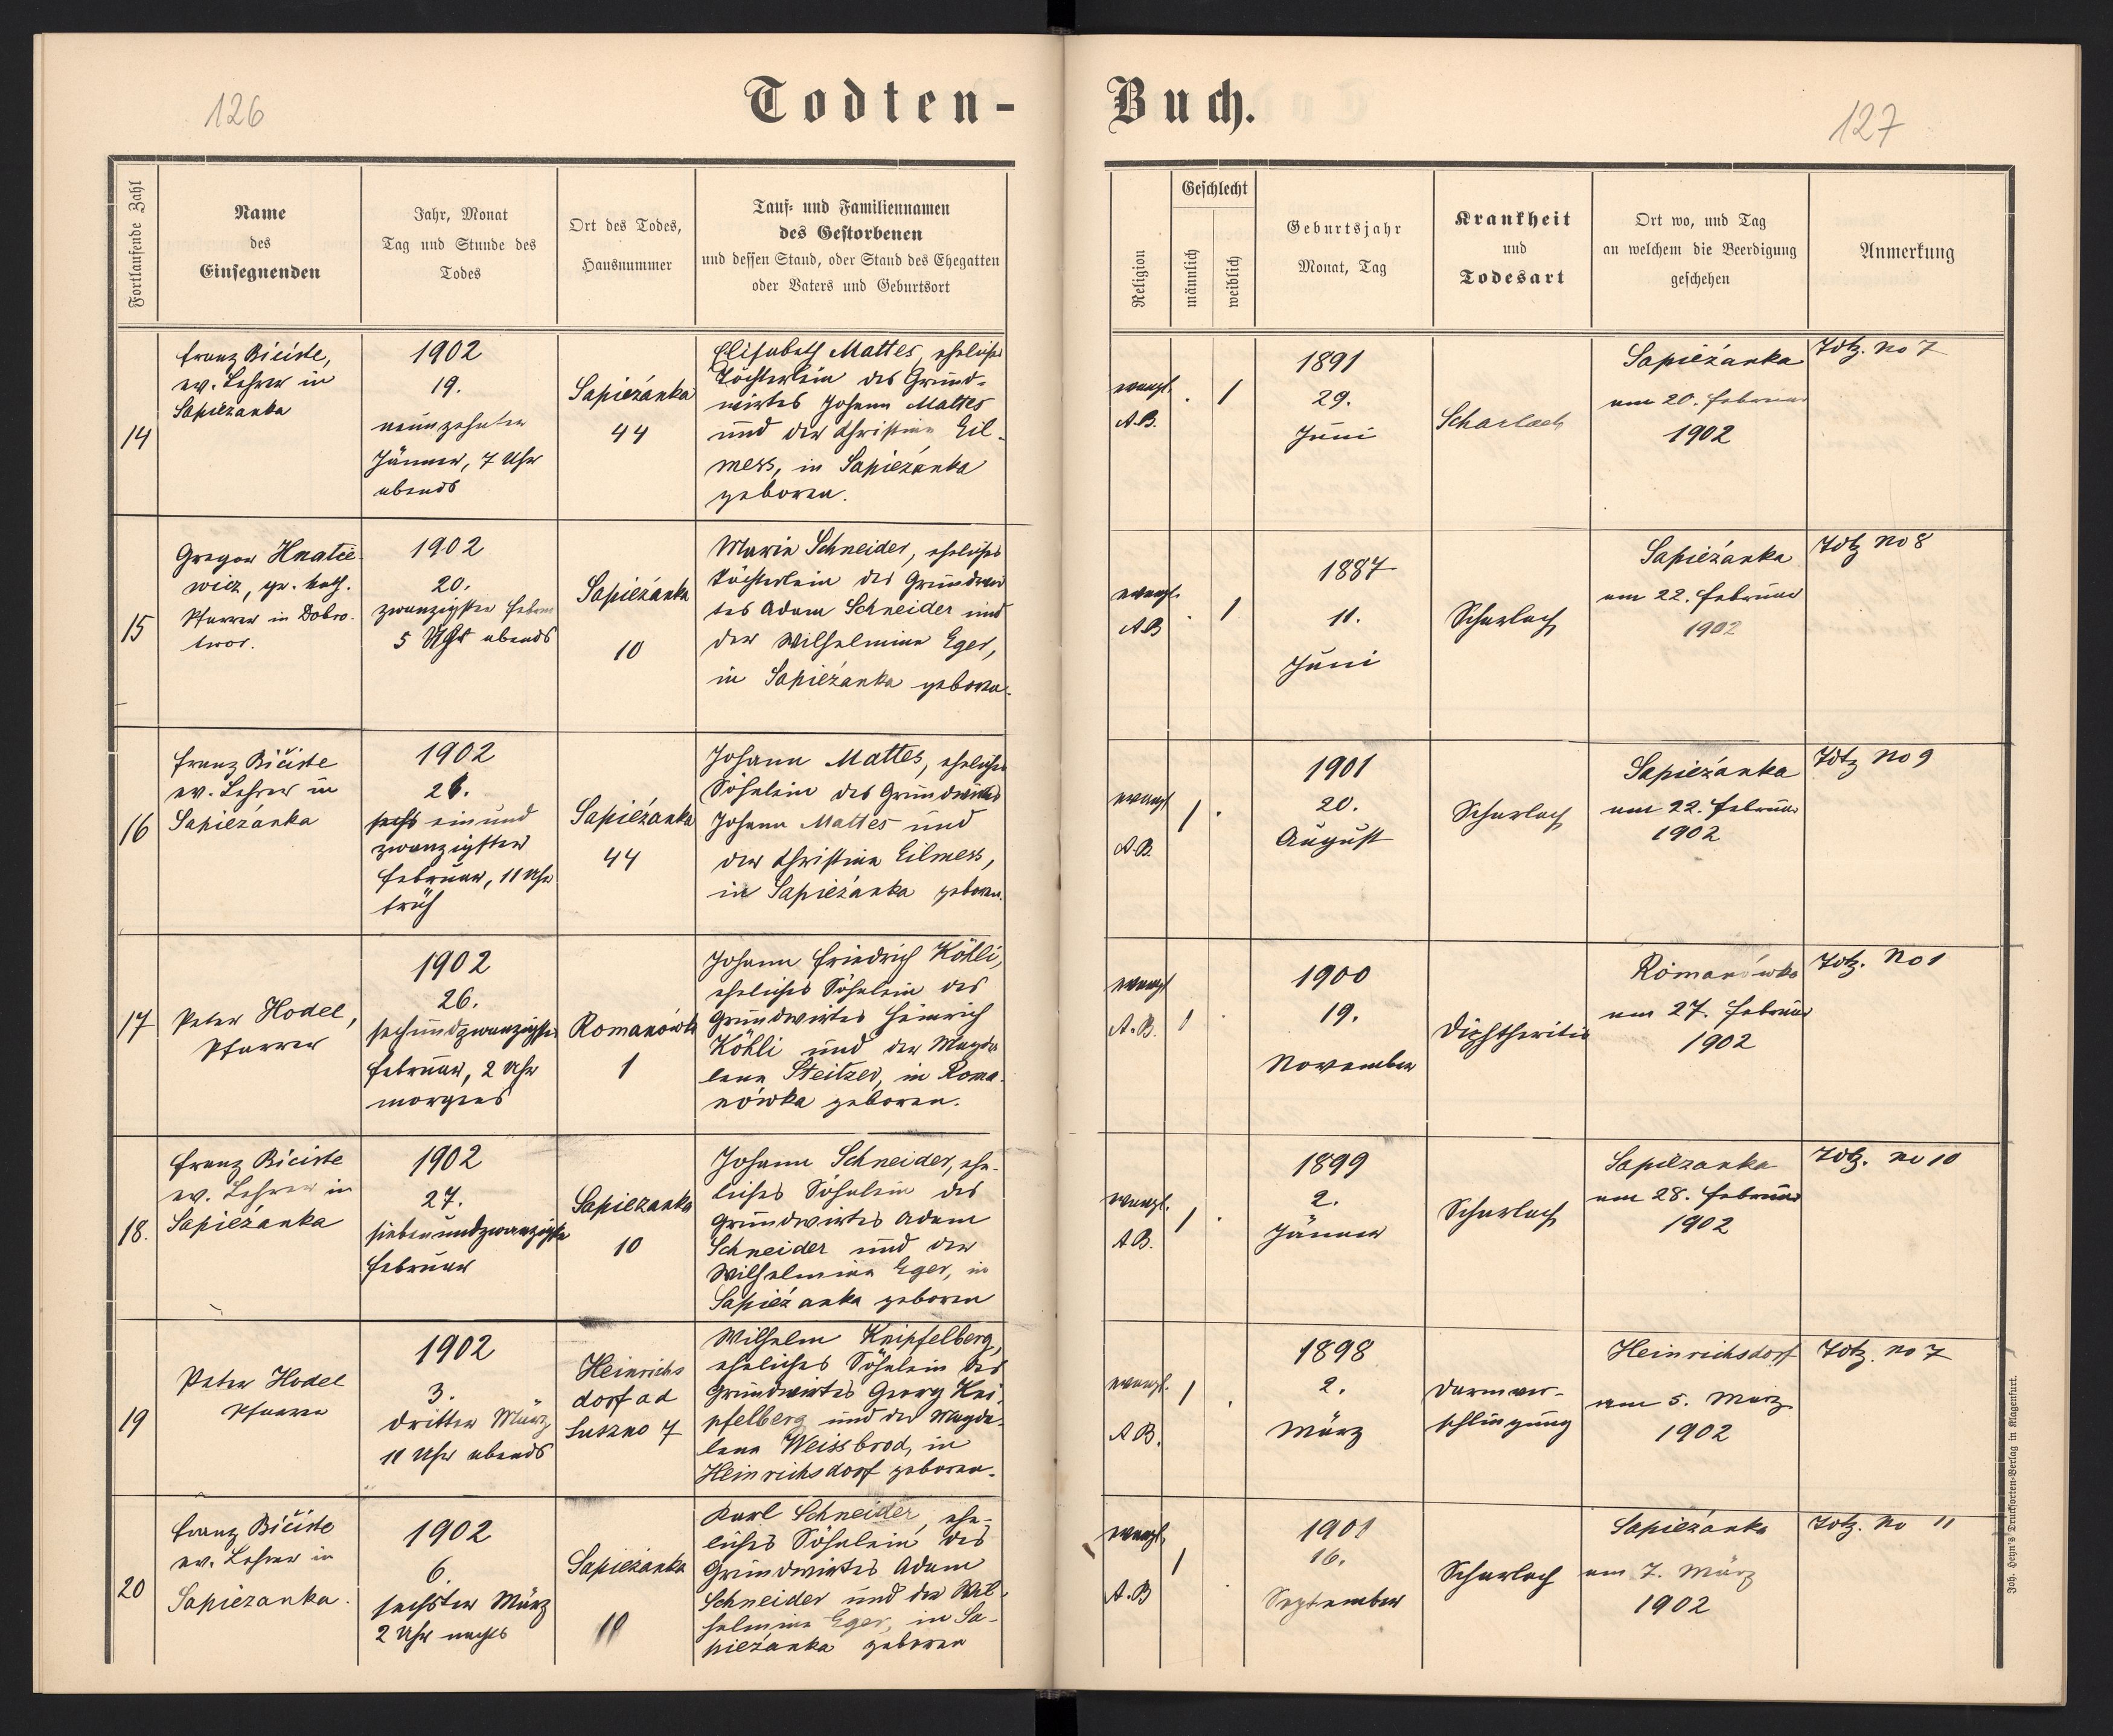 126
Todten-
Fortlaufende Zahl
Name
des
Einsegnenden
Jahr, Monat
Tag und Stunde des
Todes
Ort des Todes,
Hausnummer
Tauf- und Familiennamen
des Gestorbenen
und dessen Stand, oder Stand des Ehegatten
oder Vaters und Geburtsort
14
Franz Bičiste,
ev. Lehrer in
Sapieżanka
1902
19.
neunzehnter
Jänner, 7 Uhr
abends
Sapieżanka
44
Elisabeth Mattes, eheliches
Töchterlein des Grund-
wirtes Johann Mattes
und der Christina Eil-
mess, in Sapieżanka
geboren.
15
Gregor Hnatie-
wicz, gr. kath.
Pfarrer in Dobro-
twor.
1902
20.
zwanzigster Febru
5 Uhr abends
Sapieżanka
10
Maria Schneider, eheliches
Töchterlein des Grundwir
tes Adam Schneider und
der Wilhelmine Eger,
in Sapieżanka geboren.
16
Franz Bičiste
ev. Lehrer in
Sapieżanka
1902
21.
sechs einund
zwanzigster
Februar, 11 Uhr
früh
Sapieżanka
44
Johann Mattes, eheliches
Söhnlein des Grundwirtes
Johann Mattes und
der Christina Eilmess,
in Sapieżanka geboren.
17
Peter Hodel,
Pfarrer
1902
26.
sechsundzwanzigster
Februar, 2 Uhr
morgens
Romanówka
1
Johann Friedrich Köhli,
eheliches Söhnlein des
Grundwirtes Heinrich
Köhli und der Magda
lena Steitzer, in Roma-
nówka geboren.
18.
Franz Bičiste
ev. Lehrer in
Sapieżanka
1902
27.
siebenundzwanzigster
Februar
Sapieżanka
10
Johann Schneider, ehe-
liches Söhnlein des
Grundwirtes Adam
Schneider und der
Wilhelmina Eger, in
Sapieżanka geboren
19
Peter Hodel
Pfarrer
1902
3.
dritter März
11 Uhr abends
Heinrichs
dorf ad
Suszno 7
Wilhelm Knipfelberg,
eheliches Söhnlein des
Grundwirtes Georg Kni
pfelberg und der Magda-
lena Weissbrod, in
Heinrichsdorf geboren.
20
Franz Bičiste
ev. Lehrer in
Sapieżanka.
1902
6.
sechster März
2 Uhr nachts
Sapieżanka
10
Karl Schneider, ehe-
liches Söhnlein des
Grundwirtes Adam
Schneider und der Wil-
helmina Eger, in Sa-
pieżanka geboren
Buch.
127
Religion
Geschlecht
männlich
weiblich
Geburtsjahr
Monat, Tag
Krankheit
und
Todesart
Ort wo, und Tag
an welchem die Beerdigung
geschehen
Anmerkung
evangl.
A.B.
. 1
1891
29.
Juni
Scharlach
Sapieżanka
am 20. Februar
1902
Totz. No 7
evangl.
AB
. 1
1887
11.
Juni
Scharlach
Sapieżanka
am 22. Februar
1902
Totz No 8
evangl
A.B.
1 .
1901
20.
August
Scharlach
Sapieżanka
am 22. Februar
1902
Totz No 9
evangl
A.B.
1 .
1900
19.
November
Diphtheritis
Romanówka
am 27. Februar
1902
Totz. No 1
evangl.
A.B.
1 .
1899
2.
Jänner
Scharlach
Sapieżanka
am 28. Februar
1902
Totz. No 10
evangl.
AB.
1 .
1898
2.
März
Darmver-
schlingung
Heinrichsdorf
am 5. März
1902
Totz. No 7
evangl.
A.B
1 .
1901
16.
September
Scharlach
Sapieżanka
am 7. März
1902
Totz. No 11
Joh. Heyn's Drucksorten-Verlag in Klagenfurt.